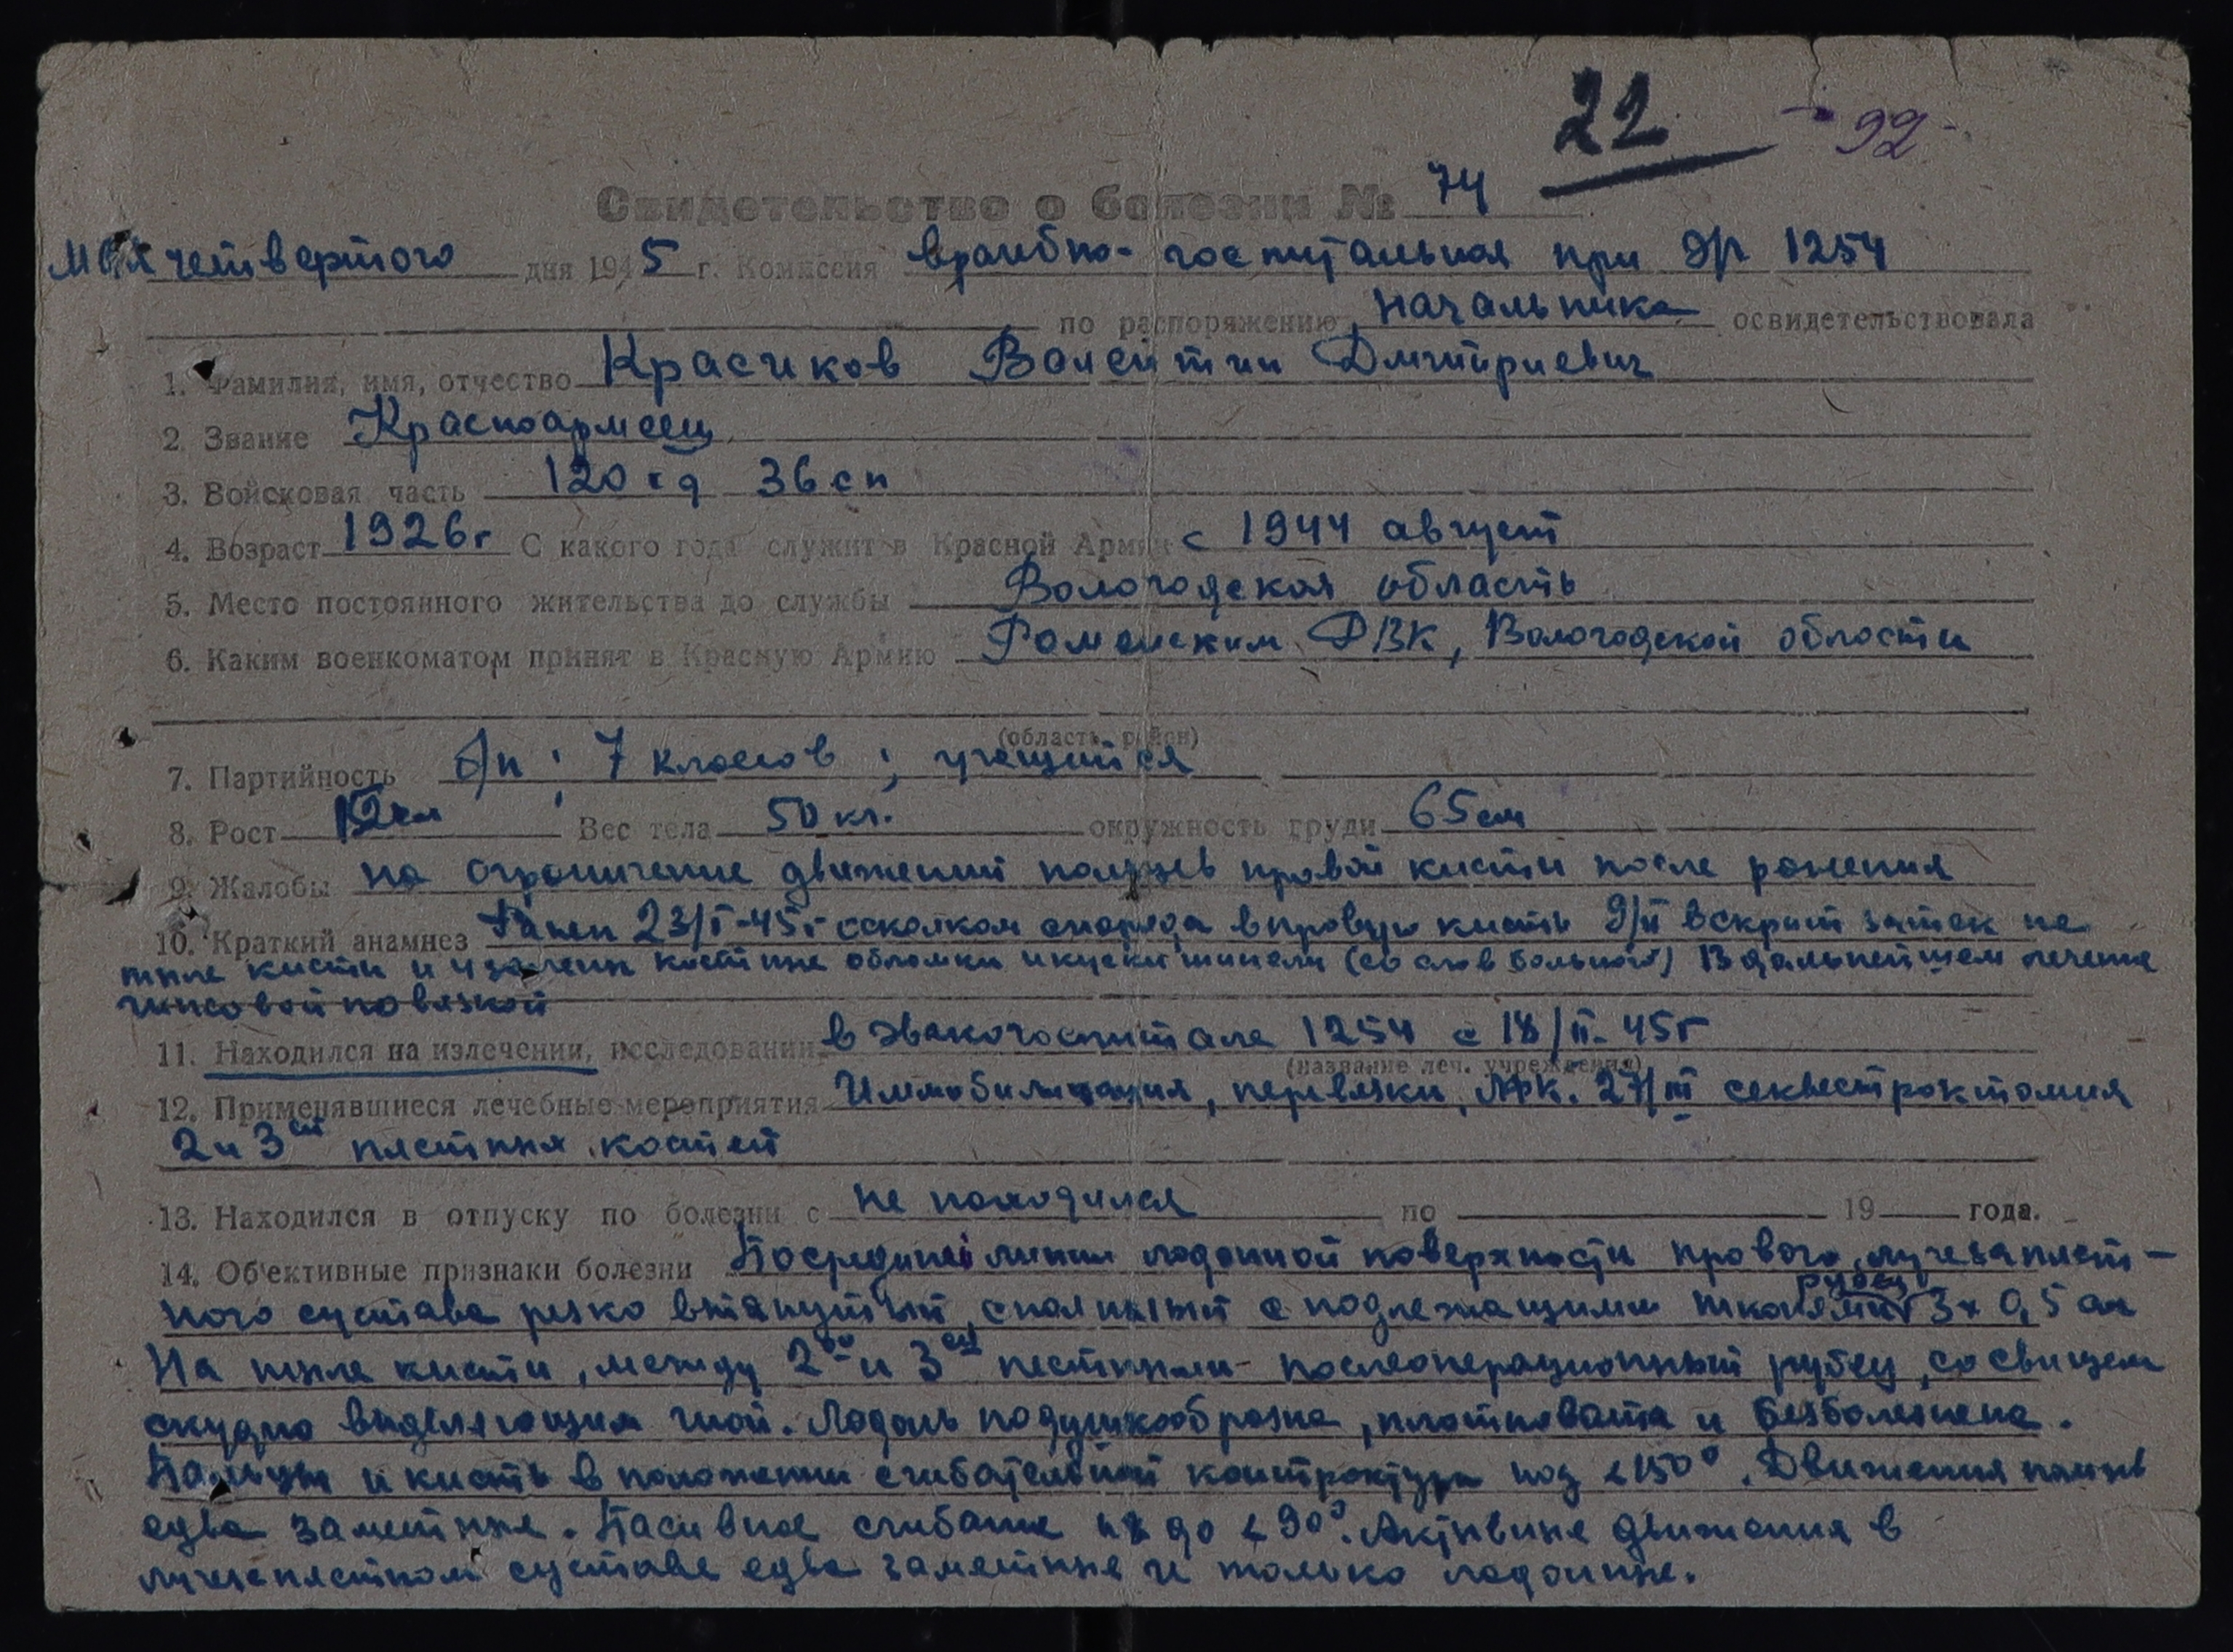 22 - 92 -
Свидетельство о болезни № 74
мая четвертого дня 1945 г. Комиссия врачебно-госпитальная при Эг 1254
по распоряжению начальника освидетельствовала
1. Фамилия, имя, отчество Красиков Валентин Дмитриевич
2. Звание Красноармеец
3. Войсковая часть 120 сд 36 сп
4. Возраст 1926г С какого года служит в Красной Армии с 1944 август
5. Место постоянного жительства до службы Вологодская область
6. Каким военкоматом принят в Красную Армию РВК, Вологодской области
(область, район)
7. Партийность б/п; 7 классов; учащийся
8. Рост Вес тела 50 кг. окружность груди 65 см
9. Жалобы на ограничение движений пальцев правой кисти после ранения
10. Краткий анамнез Ранен 23/I-45г осколком снаряда в правую кисть 9/II вскрыт затек на
тыле кисти и удалены костные обломки и куски шинели (со слов больного) В дальнейшем лечение
гипсовой повязкой
11. Находился на излечении, исследовании в эвакогоспитале 1254 с 18/II-45г
(название леч. учреждения)
12. Применявшиеся лечебные мероприятия Иммобилизация, перевязки, ЛФК. 27/III секвестрэктомия
2 и 3ей пястных костей
13. Находился в отпуску по болезни с не находился по 19 года.
14. Об'ективные признаки болезни По средней линии ладонной поверхности правого лучезапяст-
ного сустава резко втянутый, спаянный с подлежащими тканями рубец 3х0,5 см
На тыле кисти, между 2ой и 3ей пястными - послеоперационный рубец, со свищем
скудно выделяющим гной. Ладонь подушкообразна, плотновата и безболезнена.
Пальцы и кисть в положении сгибательной контрактуры под < 150°. Движения пальцев
едва заметные. Пасивное сгибание их до < 90°. Активные движения в
лучезапястном суставе едва заметные и только ладонные.